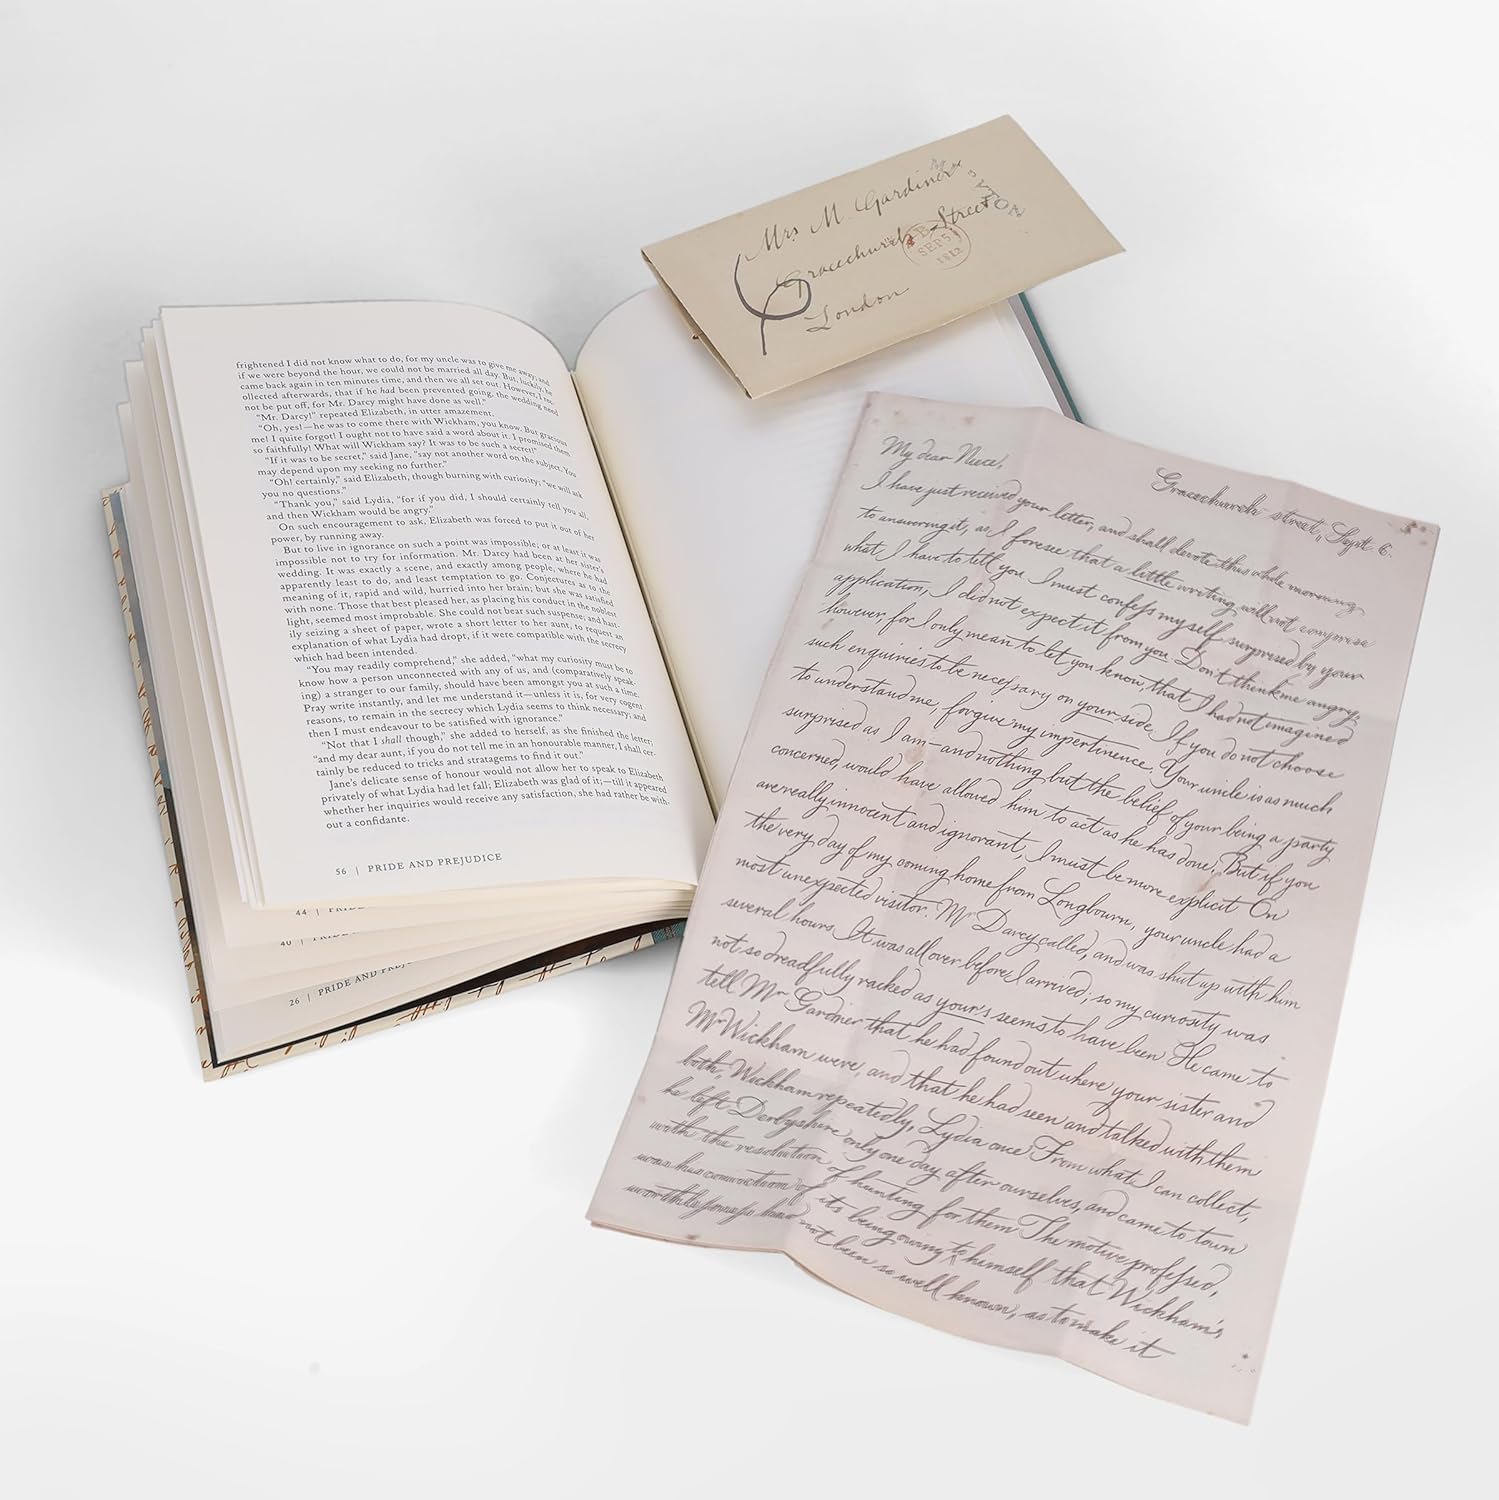 frightened I did not know what to do, for my uncle was to give me away; and
if we were beyond the hour, we could not be married all day. But, luckily, he
came back again in ten minutes time, and then we all set out. However, I rec-
ollected afterwards, that if he had been prevented going, the wedding need
not be put off, for Mr. Darcy might have done as well."
"Mr. Darcy!" repeated Elizabeth, in utter amazement.
"Oh, yes!—he was to come there with Wickham, you know. But gracious
me! I quite forgot! I ought not to have said a word about it. I promised them
so faithfully! What will Wickham say? It was to be such a secret!"
"If it was to be secret," said Jane, "say not another word on the subject. You
may depend upon my seeking no further."
"Oh! certainly," said Elizabeth, though burning with curiosity; "we will ask
you no questions."
"Thank you," said Lydia, "for if you did, I should certainly tell you all,
and then Wickham would be angry."
On such encouragement to ask, Elizabeth was forced to put it out of her
power, by running away.
But to live in ignorance on such a point was impossible; or at least it was
impossible not to try for information. Mr. Darcy had been at her sister's
wedding. It was exactly a scene, and exactly among people, where he had
apparently least to do, and least temptation to go. Conjectures as to the
meaning of it, rapid and wild, hurried into her brain; but she was satisfied
with none. Those that best pleased her, as placing his conduct in the noblest
light, seemed most improbable. She could not bear such suspense; and hast-
ily seizing a sheet of paper, wrote a short letter to her aunt, to request an
explanation of what Lydia had dropt, if it were compatible with the secrecy
which had been intended.
"You may readily comprehend," she added, "what my curiosity must be to
know how a person unconnected with any of us, and (comparatively speak-
ing) a stranger to our family, should have been amongst you at such a time.
Pray write instantly, and let me understand it—unless it is, for very cogent
reasons, to remain in the secrecy which Lydia seems to think necessary; and
then I must endeavour to be satisfied with ignorance."
"Not that I shall though," she added to herself, as she finished the letter;
"and my dear aunt, if you do not tell me in an honourable manner, I shall cer-
tainly be reduced to tricks and stratagems to find it out."
Jane's delicate sense of honour would not allow her to speak to Elizabeth
privately of what Lydia had let fall; Elizabeth was glad of it;—till it appeared
whether her inquiries would receive any satisfaction, she had rather be with-
out a confidante.
56 | PRIDE AND PREJUDICE
44 |
40 |
26 | PRIDE AND
Mrs M. Gardiner
Gracechurch Street
London
SEP 5
1812
Gracechurch-street, Sept. 6.
My dear Niece,
I have just received your letter, and shall devote this whole morning
to answering it, as I foresee that a little writing will not comprise
what I have to tell you. I must confess myself surprised by your
application; I did not expect it from you. Don't think me angry,
however, for I only mean to let you know, that I had not imagined
such enquiries to be necessary on your side. If you do not choose
to understand me, forgive my impertinence. Your uncle is as much
surprised as I am—and nothing but the belief of your being a party
concerned, would have allowed him to act as he has done. But if you
are really innocent and ignorant, I must be more explicit. On
the very day of my coming home from Longbourn, your uncle had a
most unexpected visitor. Mr Darcy called, and was shut up with him
several hours. It was all over before I arrived; so my curiosity was
not so dreadfully racked as your's seems to have been. He came to
tell Mr Gardiner that he had found out where your sister and
Mr Wickham were, and that he had seen and talked with them
both, Wickham repeatedly, Lydia once. From what I can collect,
he left Derbyshire only one day after ourselves, and came to town
with the resolution of hunting for them. The motive professed,
was his conviction of its being owing to himself that Wickham's
worthlessness had not been so well known, as to make it